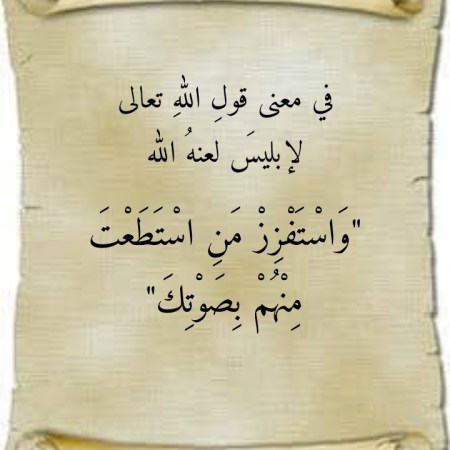 في معنى قولِ اللهِ تعالى
لإبليسَ لعنهُ الله
"وَاسْتَفْزِزْ مَنِ اسْتَطَعْتَ
مِنْهُمْ بِصَوْتِكَ"